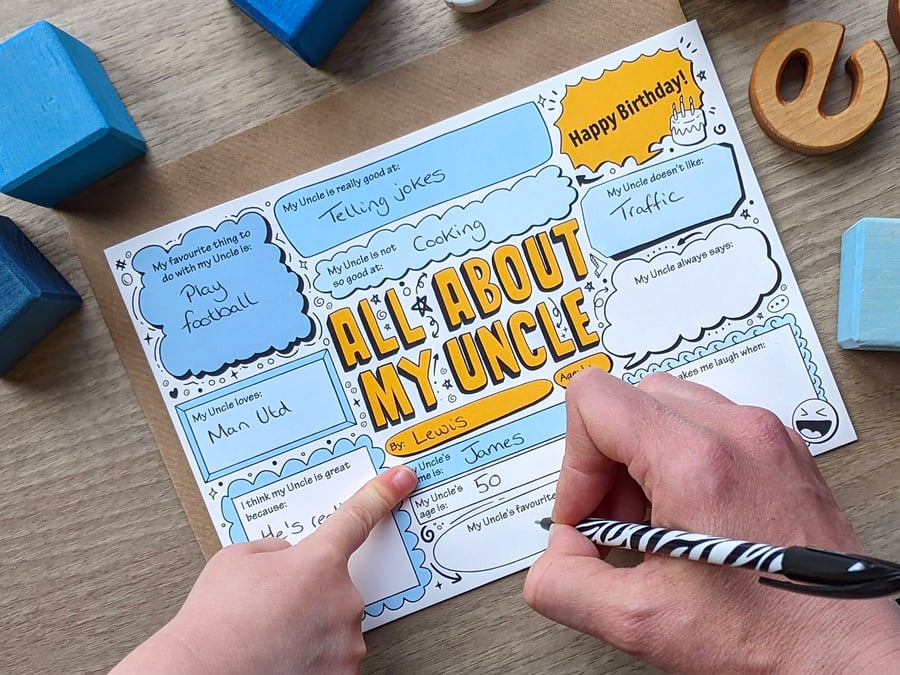 Happy Birthday!
My Uncle is really good at:
Telling jokes
My Uncle doesn't like:
Traffic
My favourite thing to
do with my Uncle is:
Play
football
My Uncle is not
so good at:
Cooking
My Uncle always says:
ALL ABOUT
MY UNCLE
By: Lewis
My Uncle loves:
Man Utd
makes me laugh when:
Uncle's
James
My Uncle's
age is:
50
I think my Uncle is great
because:
He's
My Uncle's favourite
e